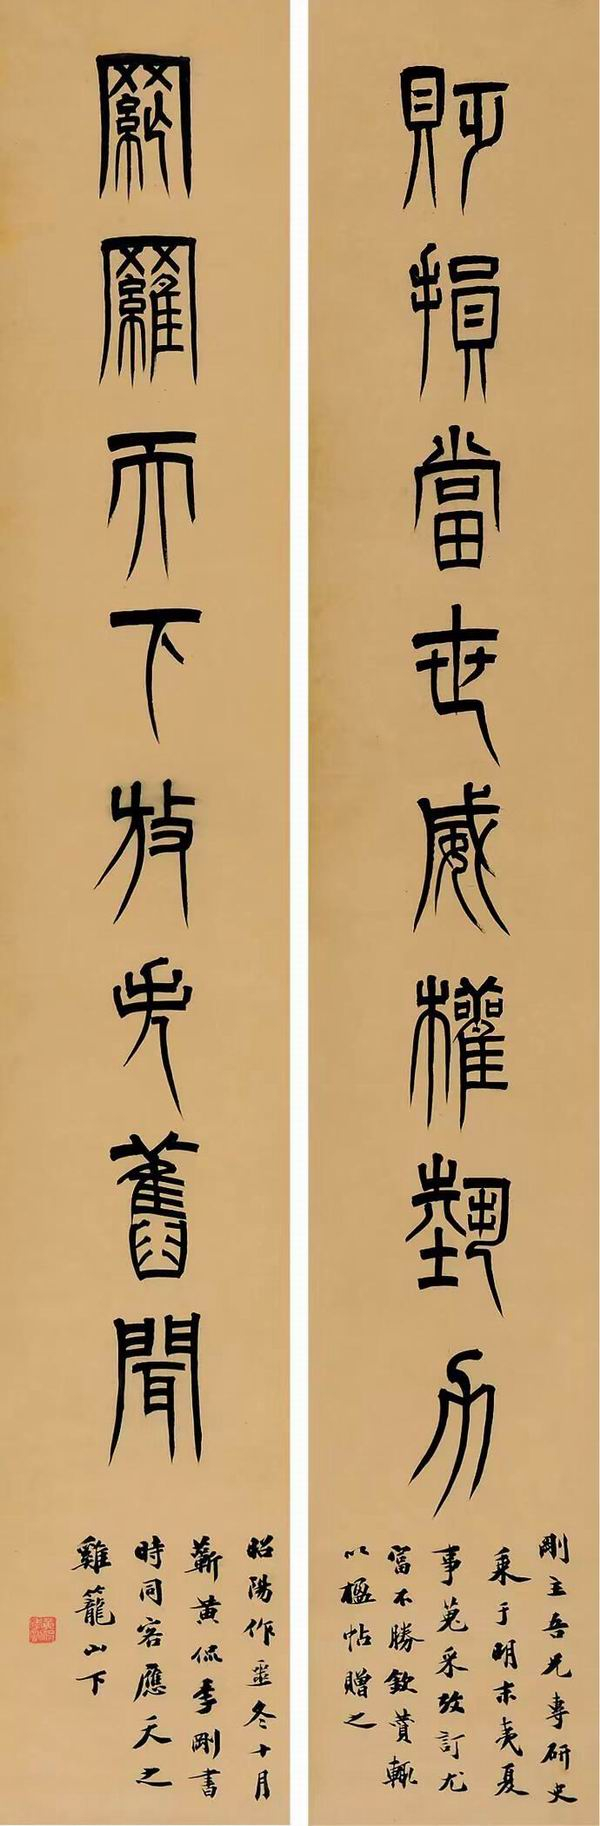 貶損當世威權埶力
剛主吾兄專研史
乘于明末夷夏
事蒐采攷訂尤
富不勝欽贊輒
以楹帖贈之
網羅天下放失舊聞
昭陽作噩冬十月
蘄黃侃季剛書
時同客應天之
雞籠山下